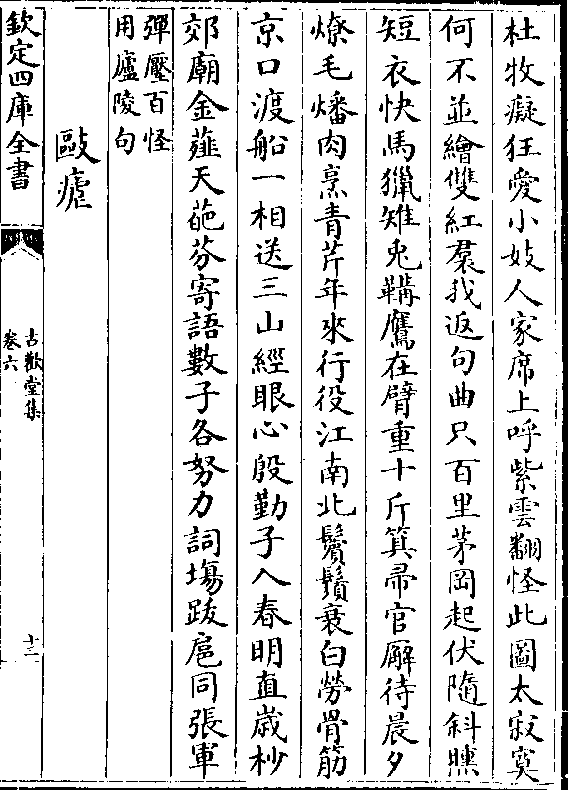 杜牧癡狂愛小妓人家席上呼紫雲翻怪此圖太寂寞
何不並繪雙紅裠我返句曲只百里茅岡起伏隨斜曛
短衣快馬獵雉兎鞲鷹在臂重十斤箕帚官廨待晨夕
燎毛燔肉烹青芹年來行役江南北鬢鬚衰白勞骨筋
京口渡船一相送三山經眼心殷勤子入春明直歲杪
郊廟金薤天葩芬寄語數子各努力詞塲跋扈同張軍
彈壓百怪
用廬陵句
敺瘧
欽定四庫全書
古歡堂集
卷六
十三